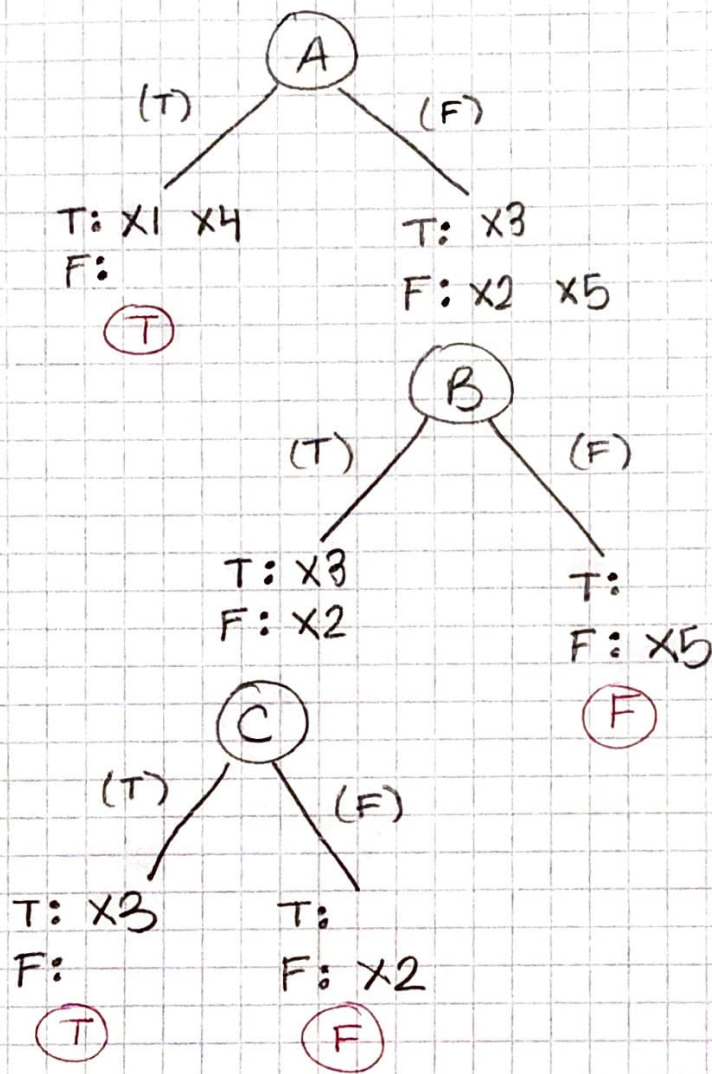 A
(T) (F)
T: x1 x4
F:
T
T: x3
F: x2 x5
B
(T) (F)
T: x3
F: x2
T:
F: x5
F
C
(T) (F)
T: x3
F:
T
T:
F: x2
F